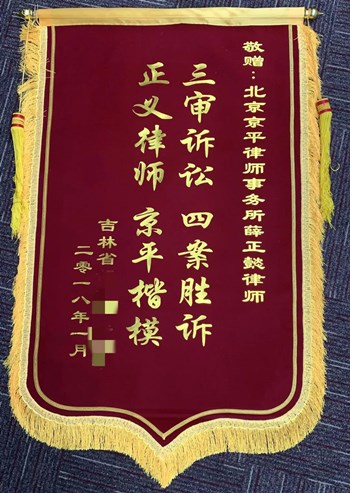 敬赠：北京京平律师事务所薛正懿律师
三审诉讼 四案胜诉
正义律师 京平楷模
吉林省
二零一八年一月